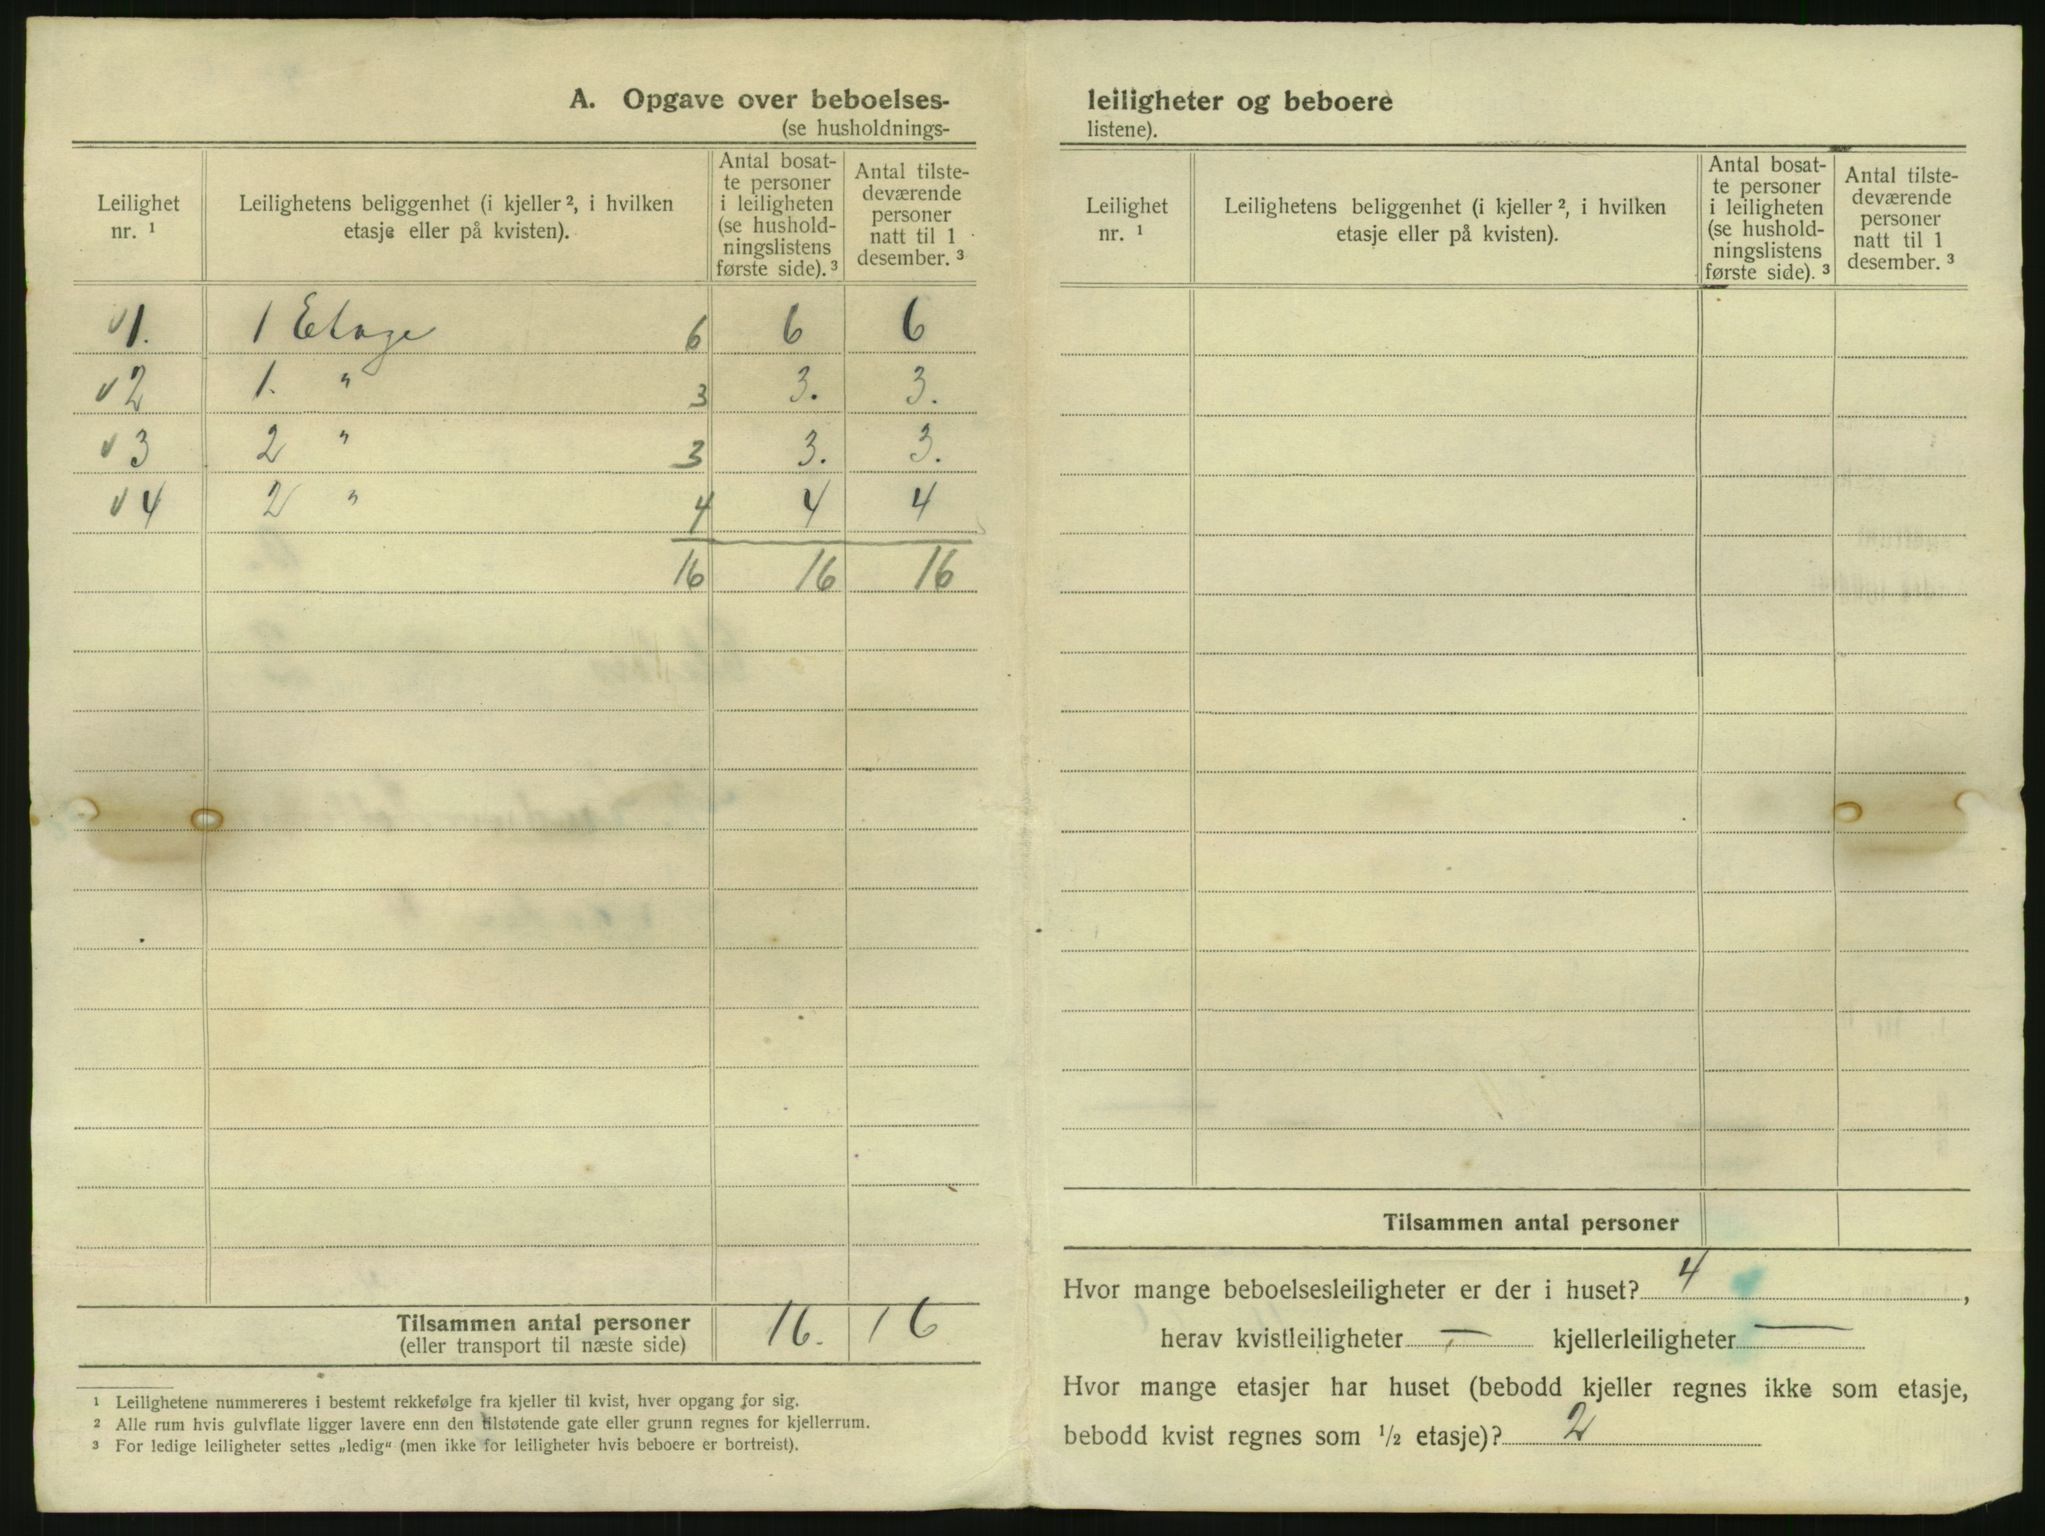 A. Opgave over beboelses-
(se husholdnings-
Leilighet nr. ¹
Leilighetens beliggenhet (i kjeller ², i hvilken etasje eller på kvisten).
Antal bosat-
te personer
i leiligheten
(se hushold-
ningslistens
første side). ³
Antal tilste-
deværende
personer
natt til 1
desember. ³
√ 1. 1 Etage 6 6 6
√ 2 1. " 3 3. 3.
√ 3 2 " 3 3. 3.
√ 4 2 " 4 4 4
16 16 16
Tilsammen antal personer 16. 16
(eller transport til næste side)
¹ Leilighetene nummereres i bestemt rekkefølge fra kjeller til kvist, hver opgang for sig.
² Alle rum hvis gulvflate ligger lavere enn den tilstøtende gate eller grunn regnes for kjellerrum.
³ For ledige leiligheter settes „ledig“ (men ikke for leiligheter hvis beboere er bortreist).
leiligheter og beboere
listene).
Leilighet nr. ¹
Leilighetens beliggenhet (i kjeller ², i hvilken etasje eller på kvisten).
Antal bosat-
te personer
i leiligheten
(se hushold-
ningslistens
første side). ³
Antal tilste-
deværende
personer
natt til 1
desember. ³
Tilsammen antal personer
Hvor mange beboelsesleiligheter er der i huset? 4 ,
herav kvistleiligheter — kjellerleiligheter —
Hvor mange etasjer har huset (bebodd kjeller regnes ikke som etasje,
bebodd kvist regnes som ½ etasje)? 2